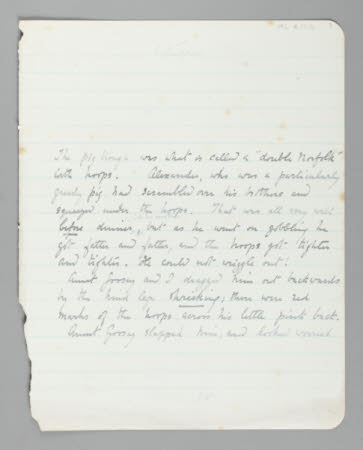 The pig trough was what is called a "double Norfolk"
with hoops. Alexander, who was a particularly
greedy pig had scrambled over his brothers and
squeezed under the hoops. That was all very well
before dinner, but as he went on gobbling he
got fatter and fatter, and the hoops got tighter
and tighter. He could not wriggle out!
Aunt Dorcas and I dragged him out backwards
by the hind legs shrieking; there were red
marks of the hoops across his little pink back.
Aunt slapped him, and looked worried